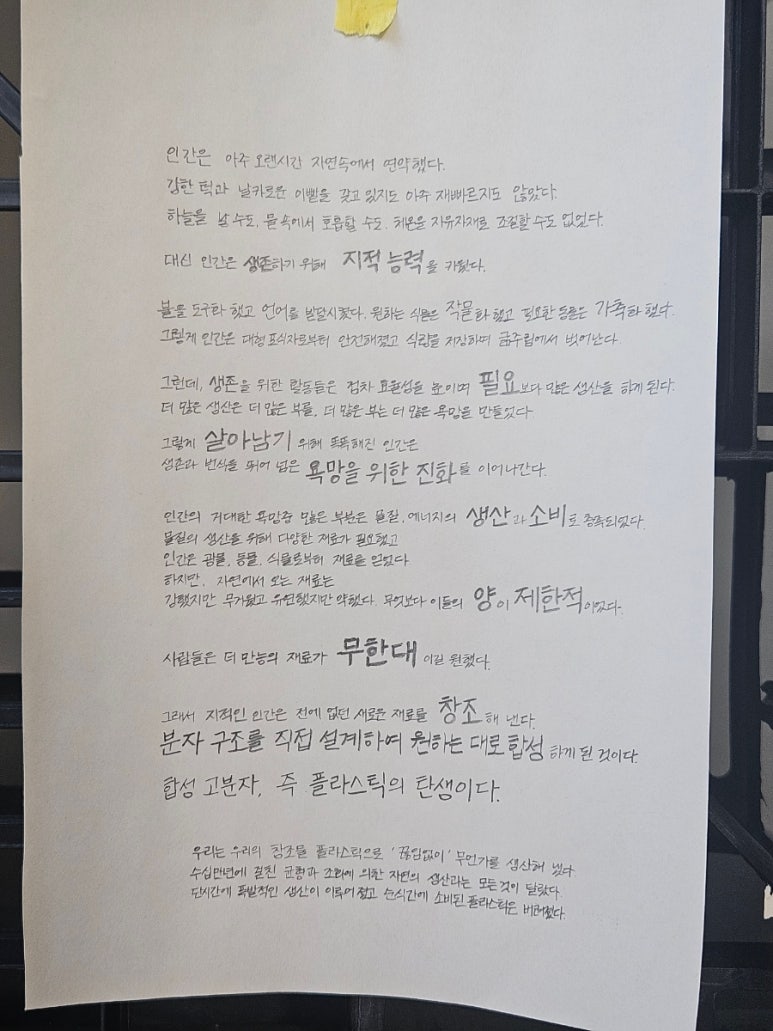 인간은 아주 오랜시간 자연속에서 연약했다.
강한 턱과 날카로운 이빨을 갖고 있지도 아주 재빠르지도 않았다.
하늘을 날 수도, 물 속에서 호흡할 수도, 체온을 자유자재로 조절할 수도 없었다.
대신 인간은 생존하기 위해 지적 능력을 키웠다.
불을 도구화 했고 언어를 발달시켰다. 원하는 식물은 작물화 했고 필요한 동물은 가축화 했다.
그렇게 인간은 대형 포식자로부터 안전해졌고 식량을 저장하며 굶주림에서 벗어난다.
그런데, 생존을 위한 활동들은 점차 효율성을 높이며 필요보다 많은 생산을 하게 된다.
더 많은 생산은 더 많은 부를, 더 많은 부는 더 많은 욕망을 만들었다.
그렇게 살아남기 위해 똑똑해진 인간은
생존과 번식을 뛰어 넘은 욕망을 위한 진화를 이어나간다.
인간의 거대한 욕망중 많은 부분은 물질, 에너지의 생산과 소비로 충족되었다.
물질의 생산을 위해 다양한 재료가 필요했고
인간은 광물, 동물, 식물로부터 재료를 얻었다.
하지만, 자연에서 오는 재료는
강했지만 무거웠고 유연했지만 약했다. 무엇보다 이들의 양이 제한적이었다.
사람들은 더 만능의 재료가 무한대이길 원했다.
그래서 지적인 인간은 전에 없던 새로운 재료를 창조해 낸다.
분자 구조를 직접 설계하여 원하는 대로 합성하게 된 것이다.
합성 고분자, 즉 플라스틱의 탄생이다.
우리는 우리의 창조물 플라스틱으로 '끊임없이' 무언가를 생산해 냈다.
수십만년에 걸친 균형과 조화에 의한 자연의 생산과는 모든 것이 달랐다.
단시간에 폭발적인 생산이 이루어 졌고 순식간에 소비된 플라스틱은 버려졌다.